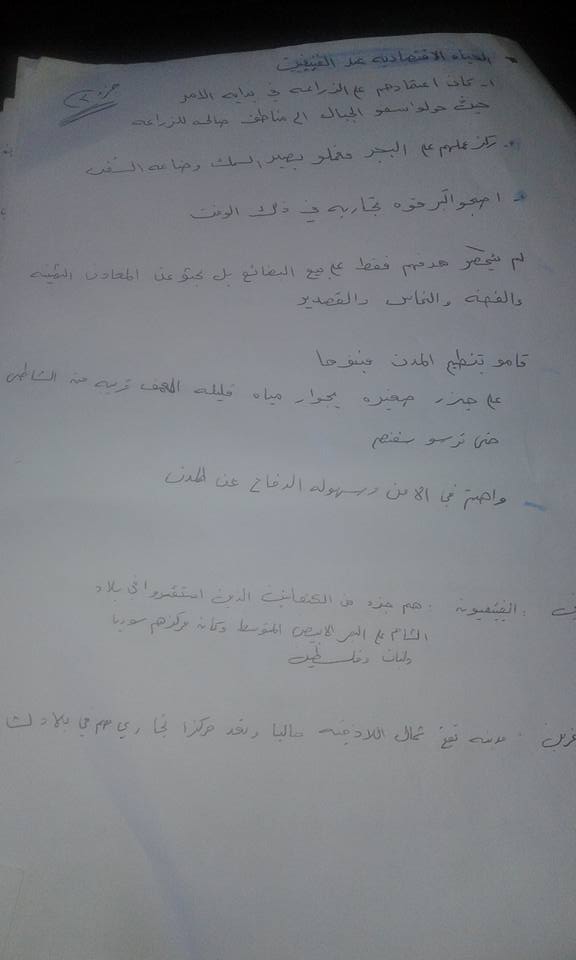 الحياه الاقتصاديه عند الفينيقيين
جزء ٢
١- كان اعتمادهم على الزراعه في بدايه الامر
حيث حولوا سفو الجبال الى مناطق صالحه للزراعه
ركز عملهم على البحر فعملو بصيد السمك وصناعه السفن
اصبحو اكبر قوه تجاريه في ذلك الوقت
لم ينحصر هدفهم فقط على بيع البضائع بل بحثو عن المعادن الثمينه
والفضه والنحاس والقصدير
قامو بتنظيم المدن فبنوها
على جزر صغيره بجوار مياه قليله العمق قريبه من الشاطئ
حتى ترسو سفنهم
واهتم في الامن وسهوله الدفاع عن المدن
الفينيقيون : هم جزء من الكنعانيين الذين استقروا في بلاد
الشام على البحر الابيض المتوسط وكان مركزهم سوريا
ولبنان وفلسطين
: مدينه تقع شمال اللاذقيه حاليا وتعد مركزا تجاري مهم في بلاد